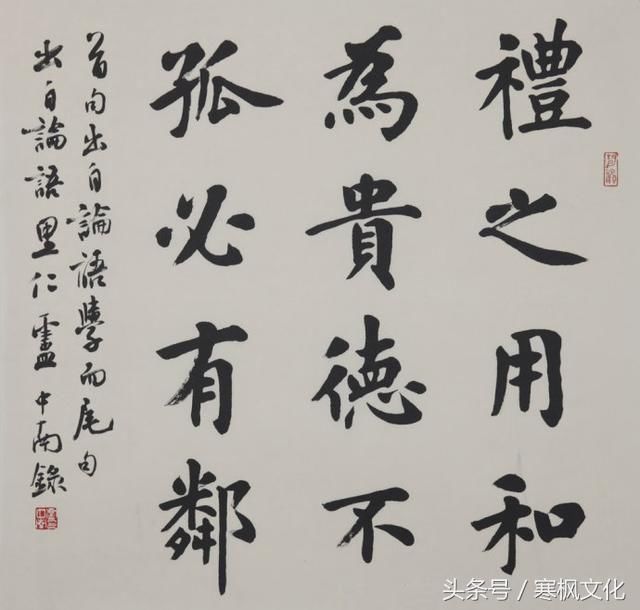 禮之用和
為貴德不
孤必有鄰
首句出自論語學而尾句
出自論語里仁盧中南錄
头条号／寒枫文化